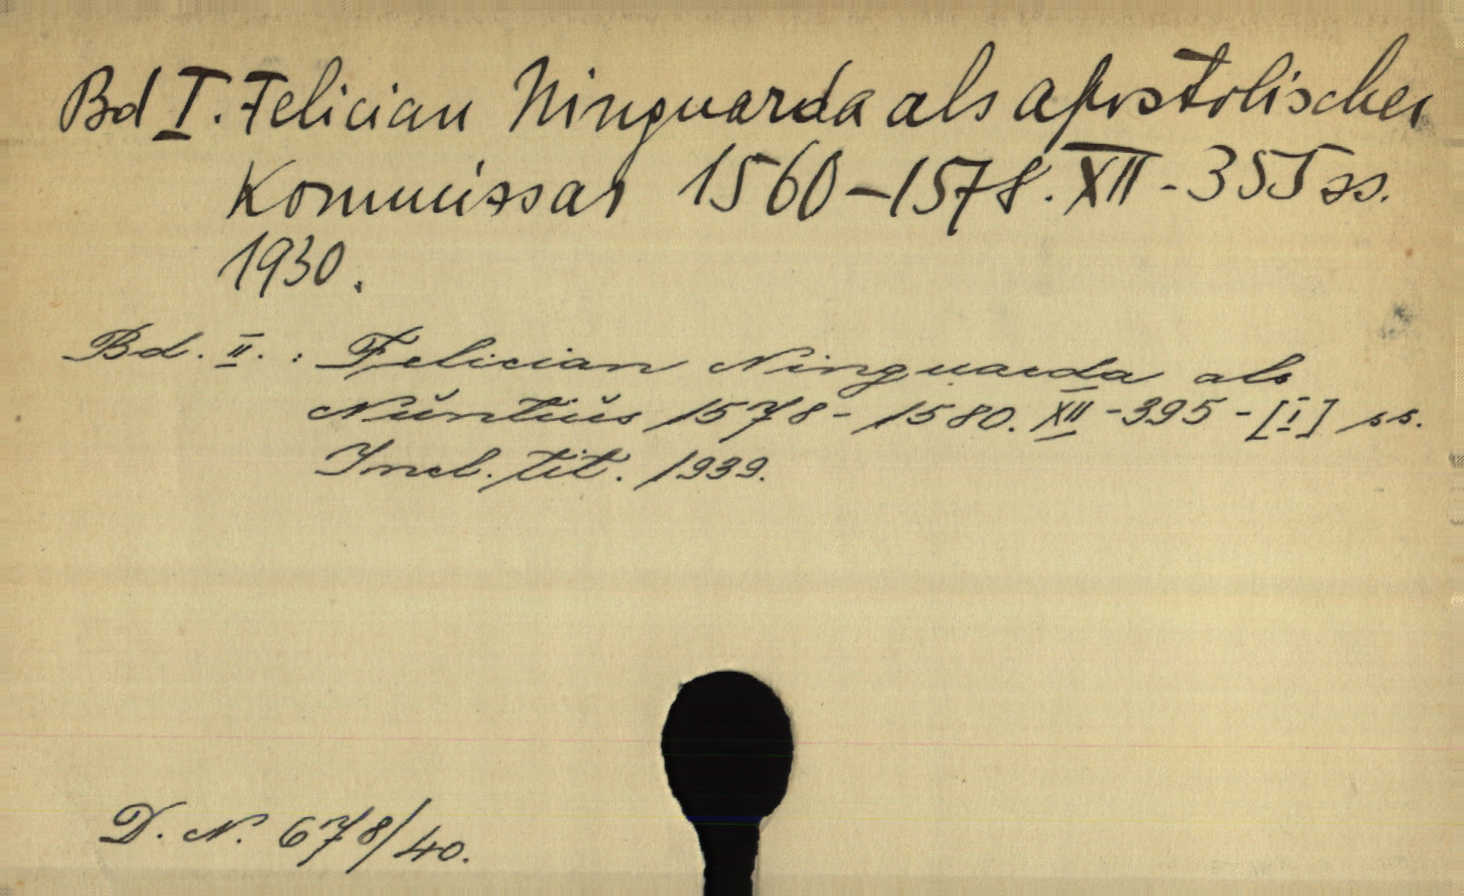 Bd I. Felician Ninguarda als apostolischer
Kommissar 1560-1578. XII - 355 ss.
1930.
Bd. II. : Felician Ninguarda als
Nŭntiŭs 1578 - 1580. XII - 395 - [1] ss.
Incl. tit. 1939.
D. N. 678/40.